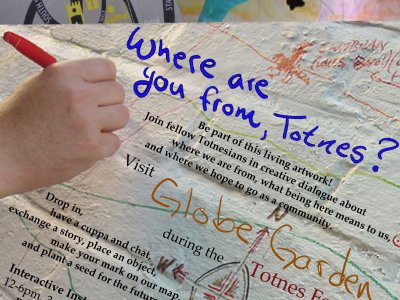 Where are
you from, Totnes?
Be part of this living artwork!
Join fellow Totnesians in creative dialogue about
where we are from, what being here means to us,
and where we hope to go as a community.
Visit
Globe Garden
during the
Totnes Fe
Drop in,
have a cuppa and chat,
exchange a story, place an object,
make your mark on our map,
and plant a seed for the future
Interactive Inst
12-6pm,